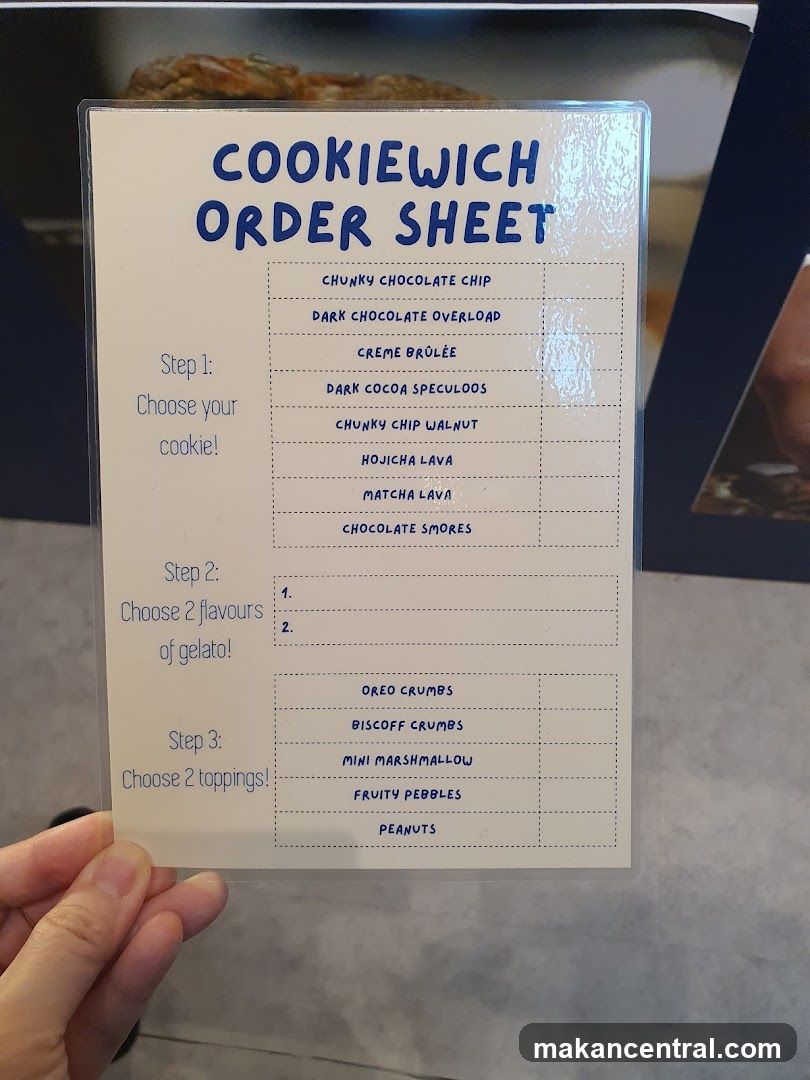 COOKIEWICH
ORDER SHEET
Step 1:
Choose your
cookie!
CHUNKY CHOCOLATE CHIP
DARK CHOCOLATE OVERLOAD
CREME BRÛLÉE
DARK COCOA SPECULOOS
CHUNKY CHIP WALNUT
HOJICHA LAVA
MATCHA LAVA
CHOCOLATE SMORES
Step 2:
Choose 2 flavours
of gelato!
1.
2.
Step 3:
Choose 2 toppings!
OREO CRUMBS
BISCOFF CRUMBS
MINI MARSHMALLOW
FRUITY PEBBLES
PEANUTS
makancentral.com